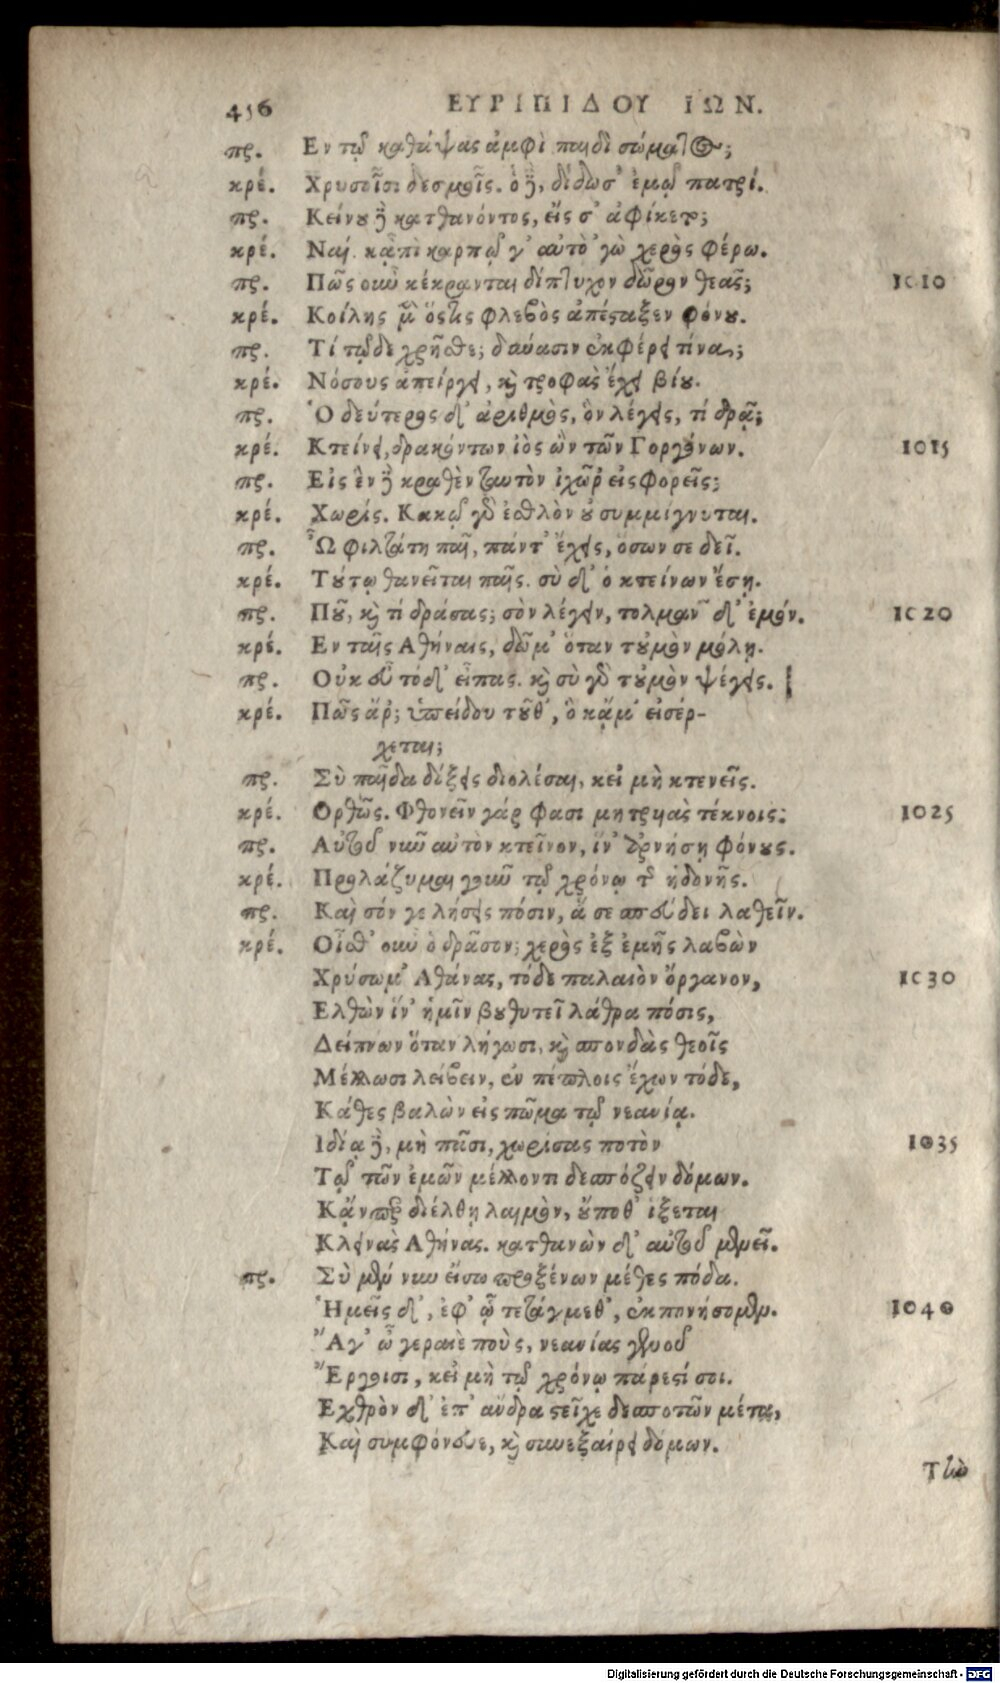 456 ΕΥΡΙΠΙΔΟΥ ΙΩΝ.
πρ. Εν τῷ καθάψας ἀμφὶ παιδὶ σώματος;
κρέ. Χρυσοῖσι δεσμοῖς. ὁ δὲ, δίδωσ' ἐμῷ πατρί.
πρ. Κείνου δὲ κατθανόντος, εἰς σ' ἀφίκετο;
κρέ. Ναί. κἀπὶ καρπῷ γ' αὐτὸ 'γὼ χερὸς φέρω.
πρ. Πῶς οὖν κέκρανται δίπτυχον δῶρον θεᾶς; 1010
κρέ. Κοίλης μὲν ὅστις φλεβὸς ἀπέσταξεν φόνου.
πρ. Τί τῷδε χρῆσθε; δύνασιν ἐκφέρει τίνα;
κρέ. Νόσους ἀπείργει, καὶ τροφὰς ἔχει βίου.
πρ. Ὁ δεύτερος δ' ἀριθμὸς, ὃν λέγεις, τί δρᾷ;
κρέ. Κτείνει, δρακόντων ἰὸς ὢν τῶν Γοργόνων. 1015
πρ. Εἰς ἓν δὲ κραθὲν ταυτὸν ἰχῶρ' εἰσφορεῖς;
κρέ. Χωρίς. Κακῷ γὰρ ἐσθλὸν οὐ συμμίγνυται.
πρ. Ὦ φιλτάτη παῖ, πάντ' ἔχεις, ὅσων σε δεῖ.
κρέ. Τούτῳ θανεῖται παῖς. σὺ δ' ὁ κτείνων ἔσῃ.
πρ. Ποῦ, καὶ τί δράσας; σὸν λέγειν, τολμᾶν δ' ἐμόν. 1020
κρέ. Εν ταῖς Αθήναις, δῶμ' ὅταν τοὐμὸν μόλῃ.
πρ. Οὐκ εὖ τόδ' εἶπας. καὶ σὺ γὰρ τοὐμὸν ψέγεις.
κρέ. Πῶς ἄρ; ὑπείδου τοῦθ', ὃ κἄμ' εἰσέρ-
χεται;
πρ. Σὺ παῖδα δόξεις διολέσαι, κεἰ μὴ κτενεῖς.
κρέ. Ορθῶς. Φθονεῖν γάρ φασι μητρυιὰς τέκνοις. 1025
πρ. Αὐτοῦ νῦν αὐτὸν κτεῖνον, ἵν' ἀρνήσῃ φόνους.
κρέ. Προλάζυμαι γοῦν τῷ χρόνῳ τῆς ἡδονῆς.
πρ. Καὶ σόν γε λήσεις πόσιν, ἅ σε σπεύδει λαθεῖν.
κρέ. Οἶσθ' οὖν ὃ δρᾶσον; χερὸς ἐξ ἐμῆς λαβὼν
Χρύσωμ' Αθάνας, τόδε παλαιὸν ὄργανον, 1030
Ελθὼν ἵν' ἡμῖν βουθυτεῖ λάθρα πόσις,
Δείπνων ὅταν λήγωσι, καὶ σπονδὰς θεοῖς
Μέλλωσι λείβειν, ἐν πέπλοις ἔχων τόδε,
Κάθες βαλὼν εἰς πῶμα τῷ νεανίᾳ.
Ιδίᾳ δὲ, μὴ πᾶσι, χωρίσας ποτὸν 1035
Τῷ τῶν ἐμῶν μέλλοντι δεσπόζειν δόμων.
Κἄνπερ διέλθῃ λαιμὸν, οὔποθ' ἵξεται
Κλεινὰς Αθήνας. κατθανὼν δ' αὐτοῦ μενεῖ.
πρ. Σὺ μὲν νυν εἴσω προξένων μέθες πόδα.
Ἡμεῖς δ', ἐφ' ᾧ τετάγμεθ', ἐκπονήσομεν. 1040
Ἄγ' ὦ γεραιὲ ποὺς, νεανίας γενοῦ
Ἔργοισι, κεἰ μὴ τῷ χρόνῳ πάρεστί σοι.
Εχθρὸν δ' ἐπ' ἄνδρα στεῖχε δεσποτῶν μέτα,
Καὶ συμφόνευε, καὶ συνεξαίρει δόμων.
Τὼ
Digitalisierung gefördert durch die Deutsche Forschungsgemeinschaft - DFG